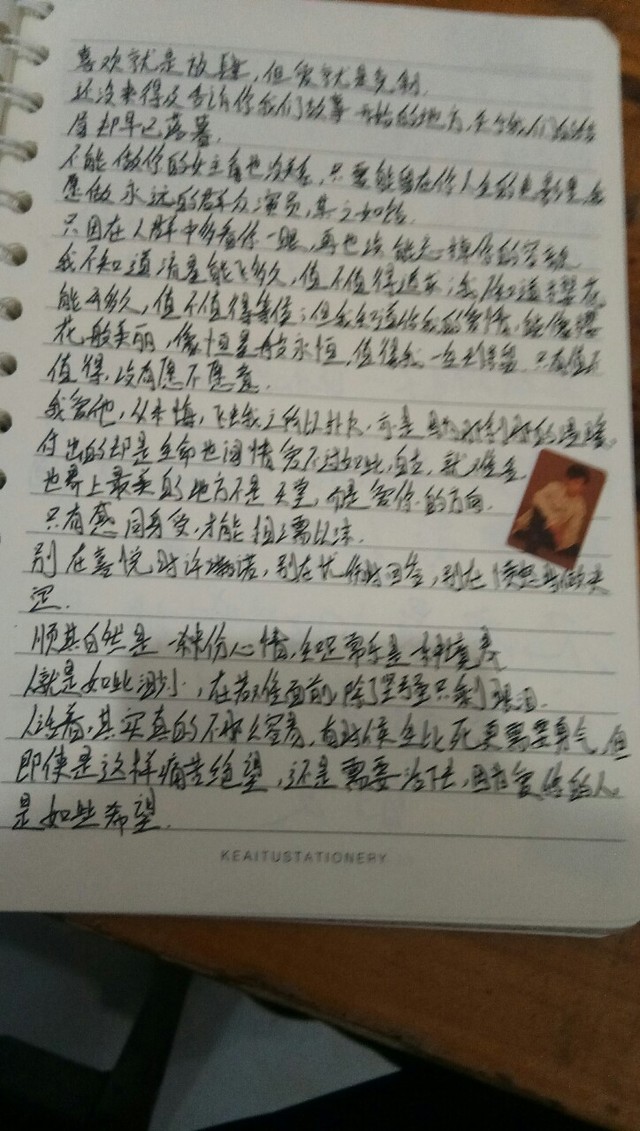 喜欢就是放肆,但爱就是克制.
还没来得及告诉你我们故事开始的地方,我们的结
居却早已落幕.
不能做你的女主角也没关系,只要能留在你人生的电影里
愿做永远的群众演员,甘之如饴.
只因在人群中多看你一眼,再也没能忘掉你的容颜
我不知道流星能飞多久,值不值得追求;我不知道樱花
能开多久,值不值得等待;但我知道你我的爱情,能像樱
花般美丽,像恒星般永恒,值得我一生去 只有值不
值得,没有愿不愿意.
我爱他,从未悔,飞蛾 可是 的温暖,
付出的却是生命 世间情爱不过如此,
世界上最美的地方不是天堂,而是爱你的方向.
只有感同身受,才能相濡以沫.
别在喜悦时许承诺,别在忧伤时回答,别在愤怒时做决
定.
顺其自然是一种份心情,知足常乐是一种境界
人就是如此渺小,在苦难面前,除了坚强只剩眼泪.
人活着,其实真的不那么容易,有时候生比死更需要勇气,但
即使是这样痛苦绝望,还是需要活下去,因为爱 的人
是如此希望.
KEAITUSTATIONERY